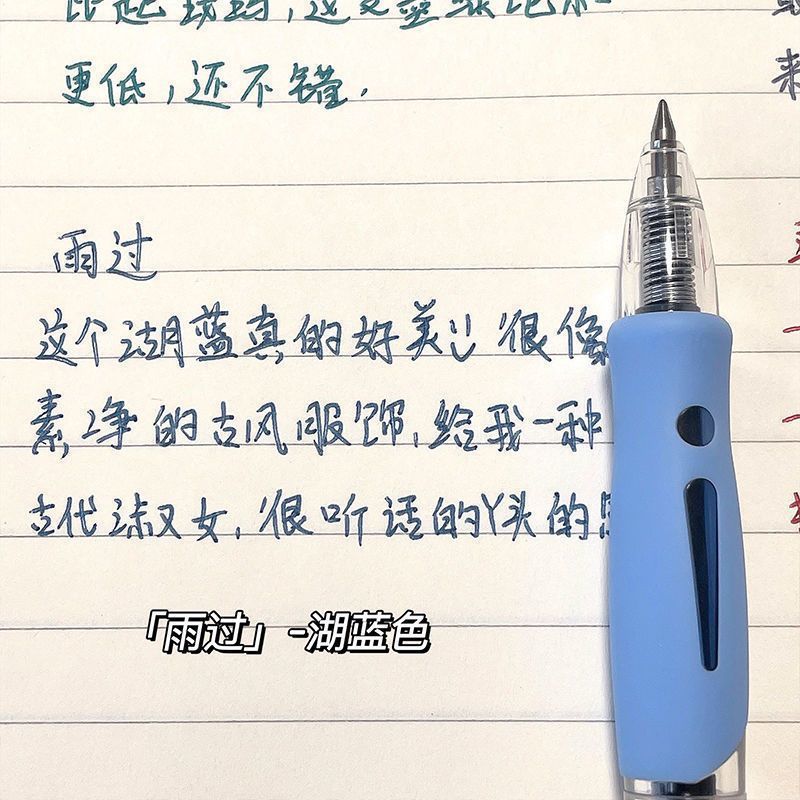 更低，还不错.
雨过
这个湖蓝真的好美 很像
素净的古风服饰，给我一种
古代淑女，很听话的丫头的
「雨过」-湖蓝色